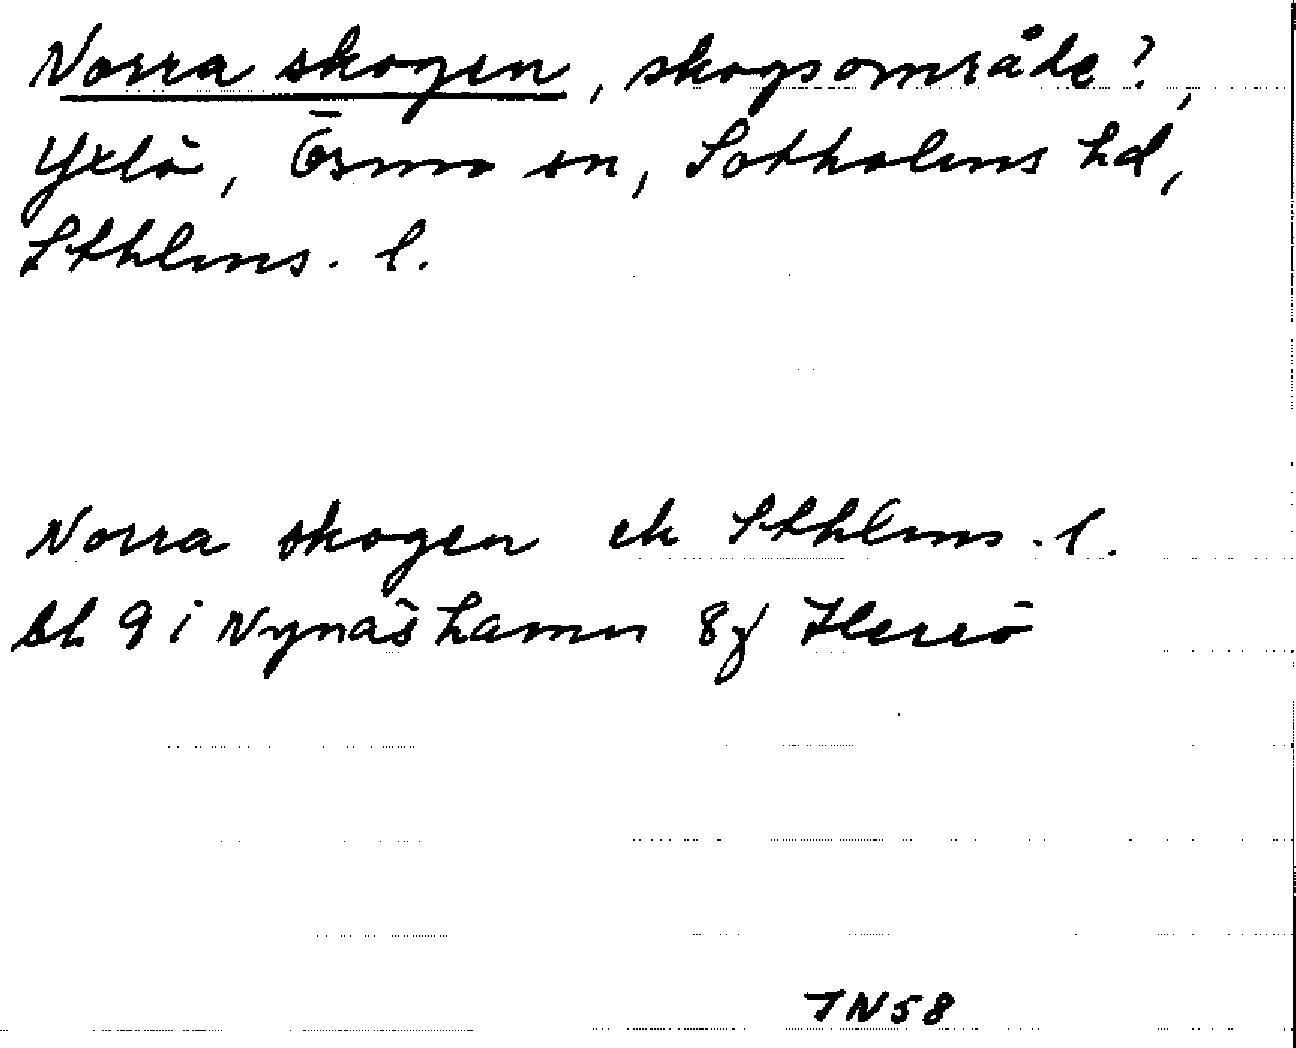 Norra skogen, skogsområde?,
Yxlö, Ösmo sn, Sotholms hd,
Sthlms. l.
Norra skogen ek Sthlms. l.
bl. 9 i Nynäshamn 8j Herrö
TN58